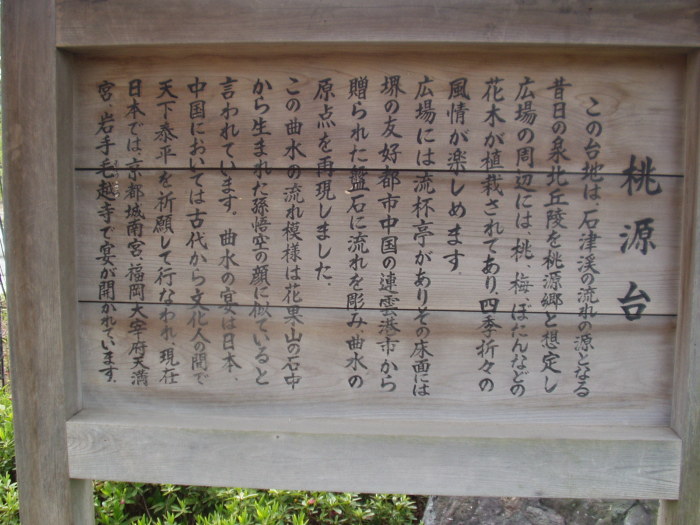 桃源台
この台地は、石津渓の流れの源となる
昔日の泉北丘陵を桃源郷と想定し
広場の周辺には、桃、梅、ぼたんなどの
花木が植栽されてあり、四季折々の
風情が楽しめます。
広場には流杯亭がありその床面には
堺の友好都市中国の連雲港市から
贈られた盤石に流れを彫み、曲水の
原点を再現しました。
この曲水の流れ模様は花果山の石中
から生まれた孫悟空の顔に似ていると
言われています。曲水の宴は日本、
中国においては古代から文化人の間で
天下泰平を祈願して行なわれ、現在
日本では、京都城南宮、福岡大宰府天満
宮、岩手毛越寺で宴が開かれています。